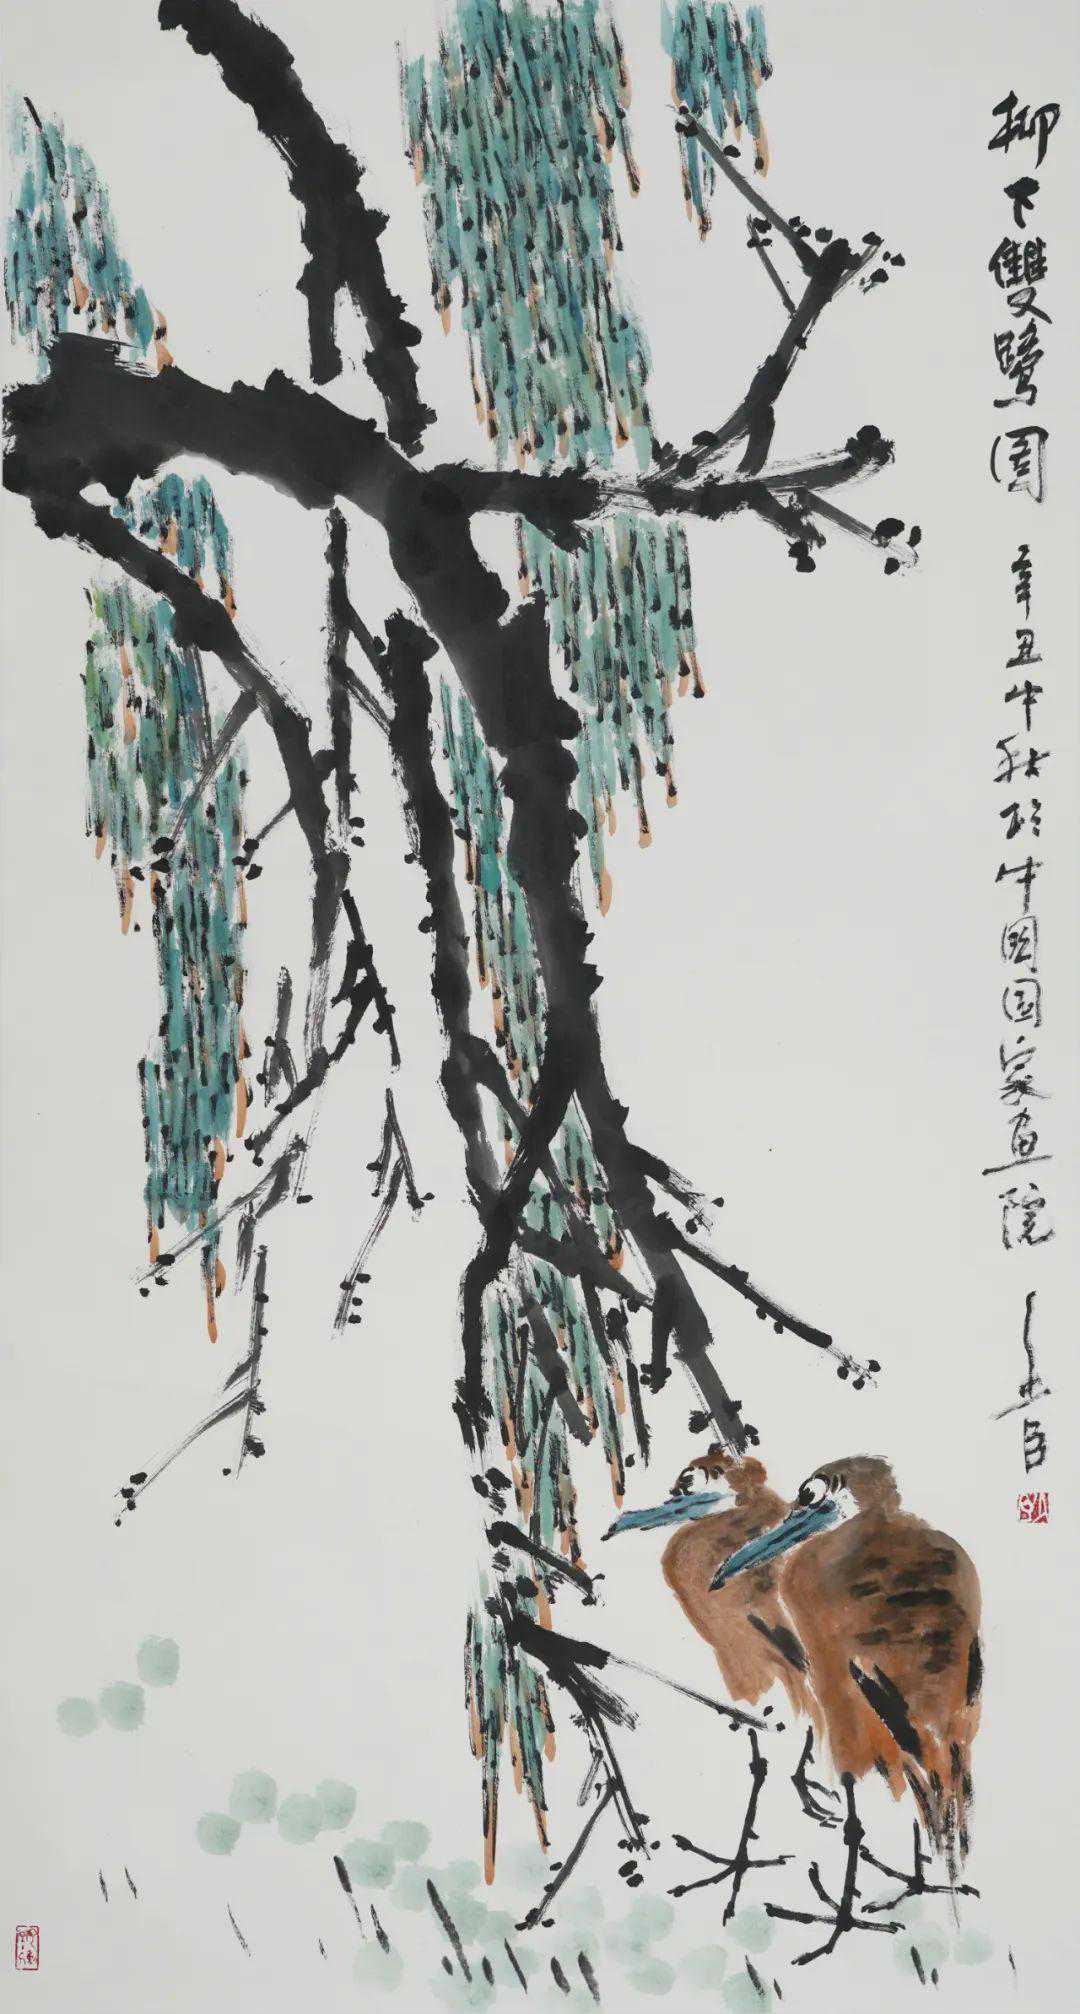 柳下雙鷺图 辛丑中秋於中国国家画院